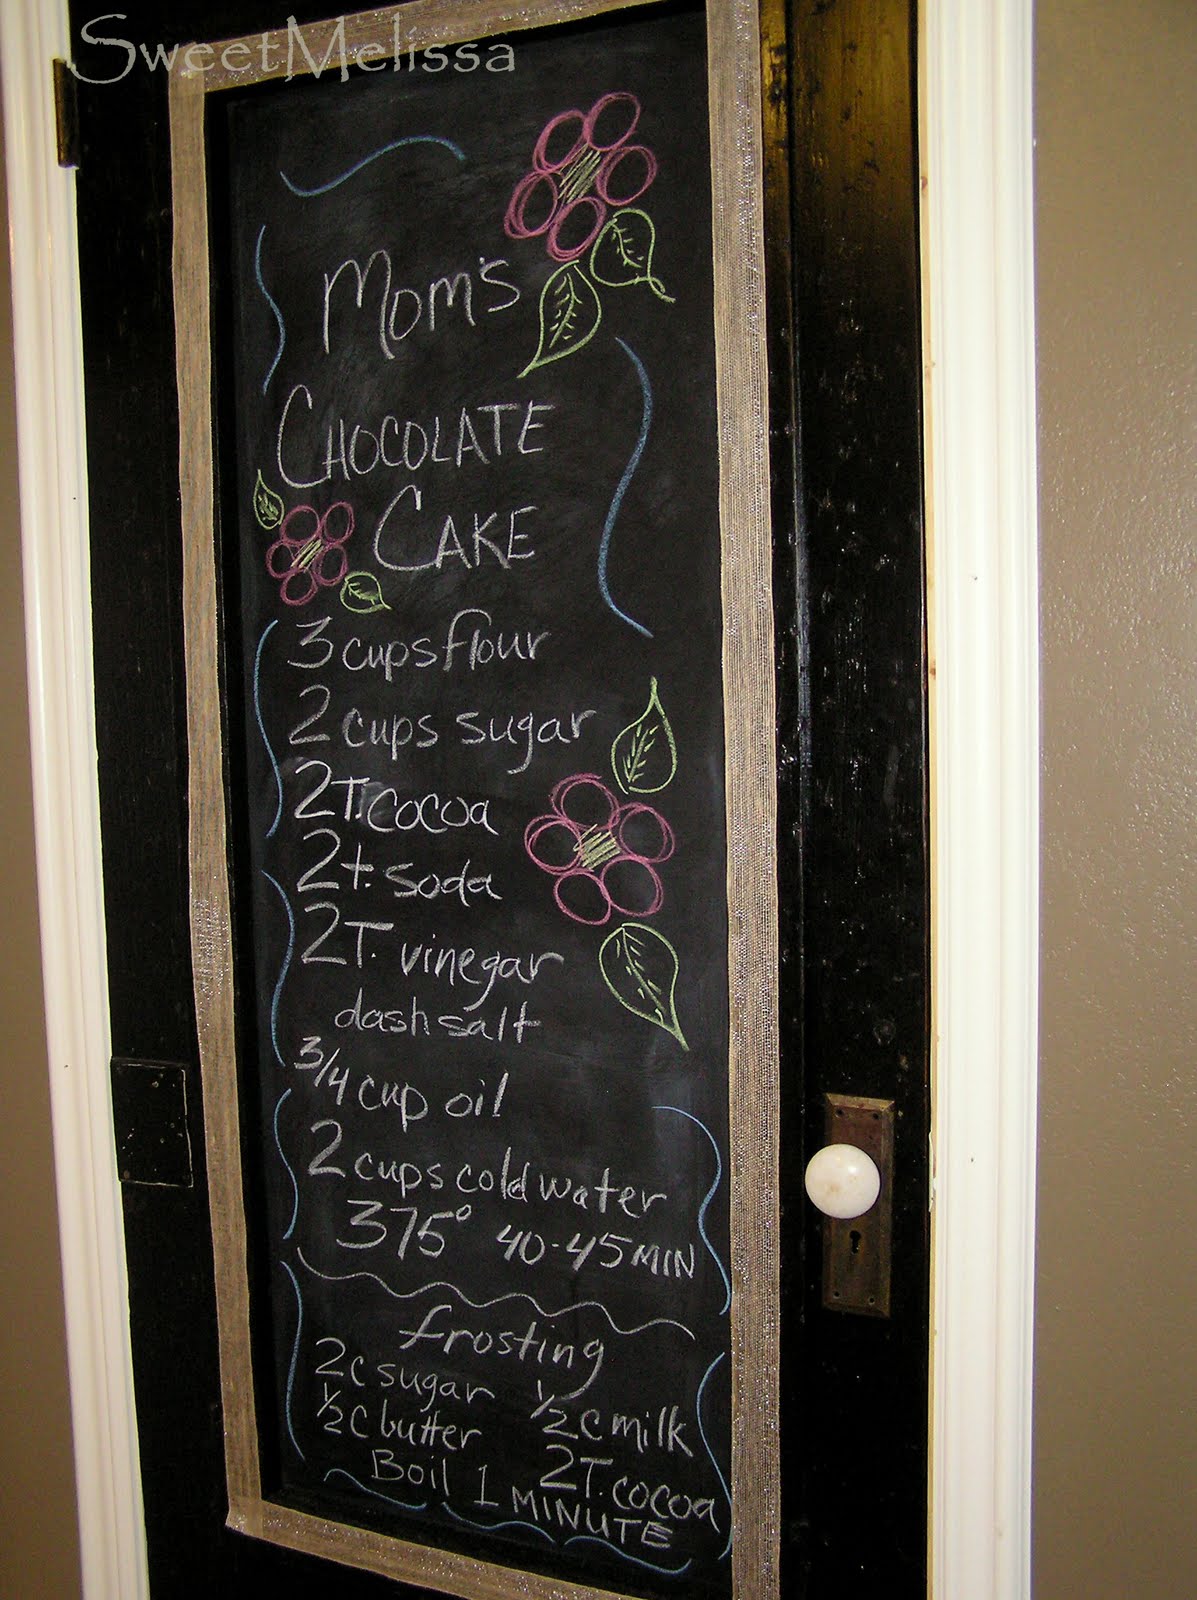 SweetMelissa
Mom's
CHOCOLATE
CAKE
3 cups flour
2 cups sugar
2T. cocoa
2t. soda
2T. vinegar
dash salt
3/4 cup oil
2 cups cold water
375° 40-45 MIN
frosting
2c sugar 1/2 c milk
1/2 c butter 2T. cocoa
Boil 1 MINUTE